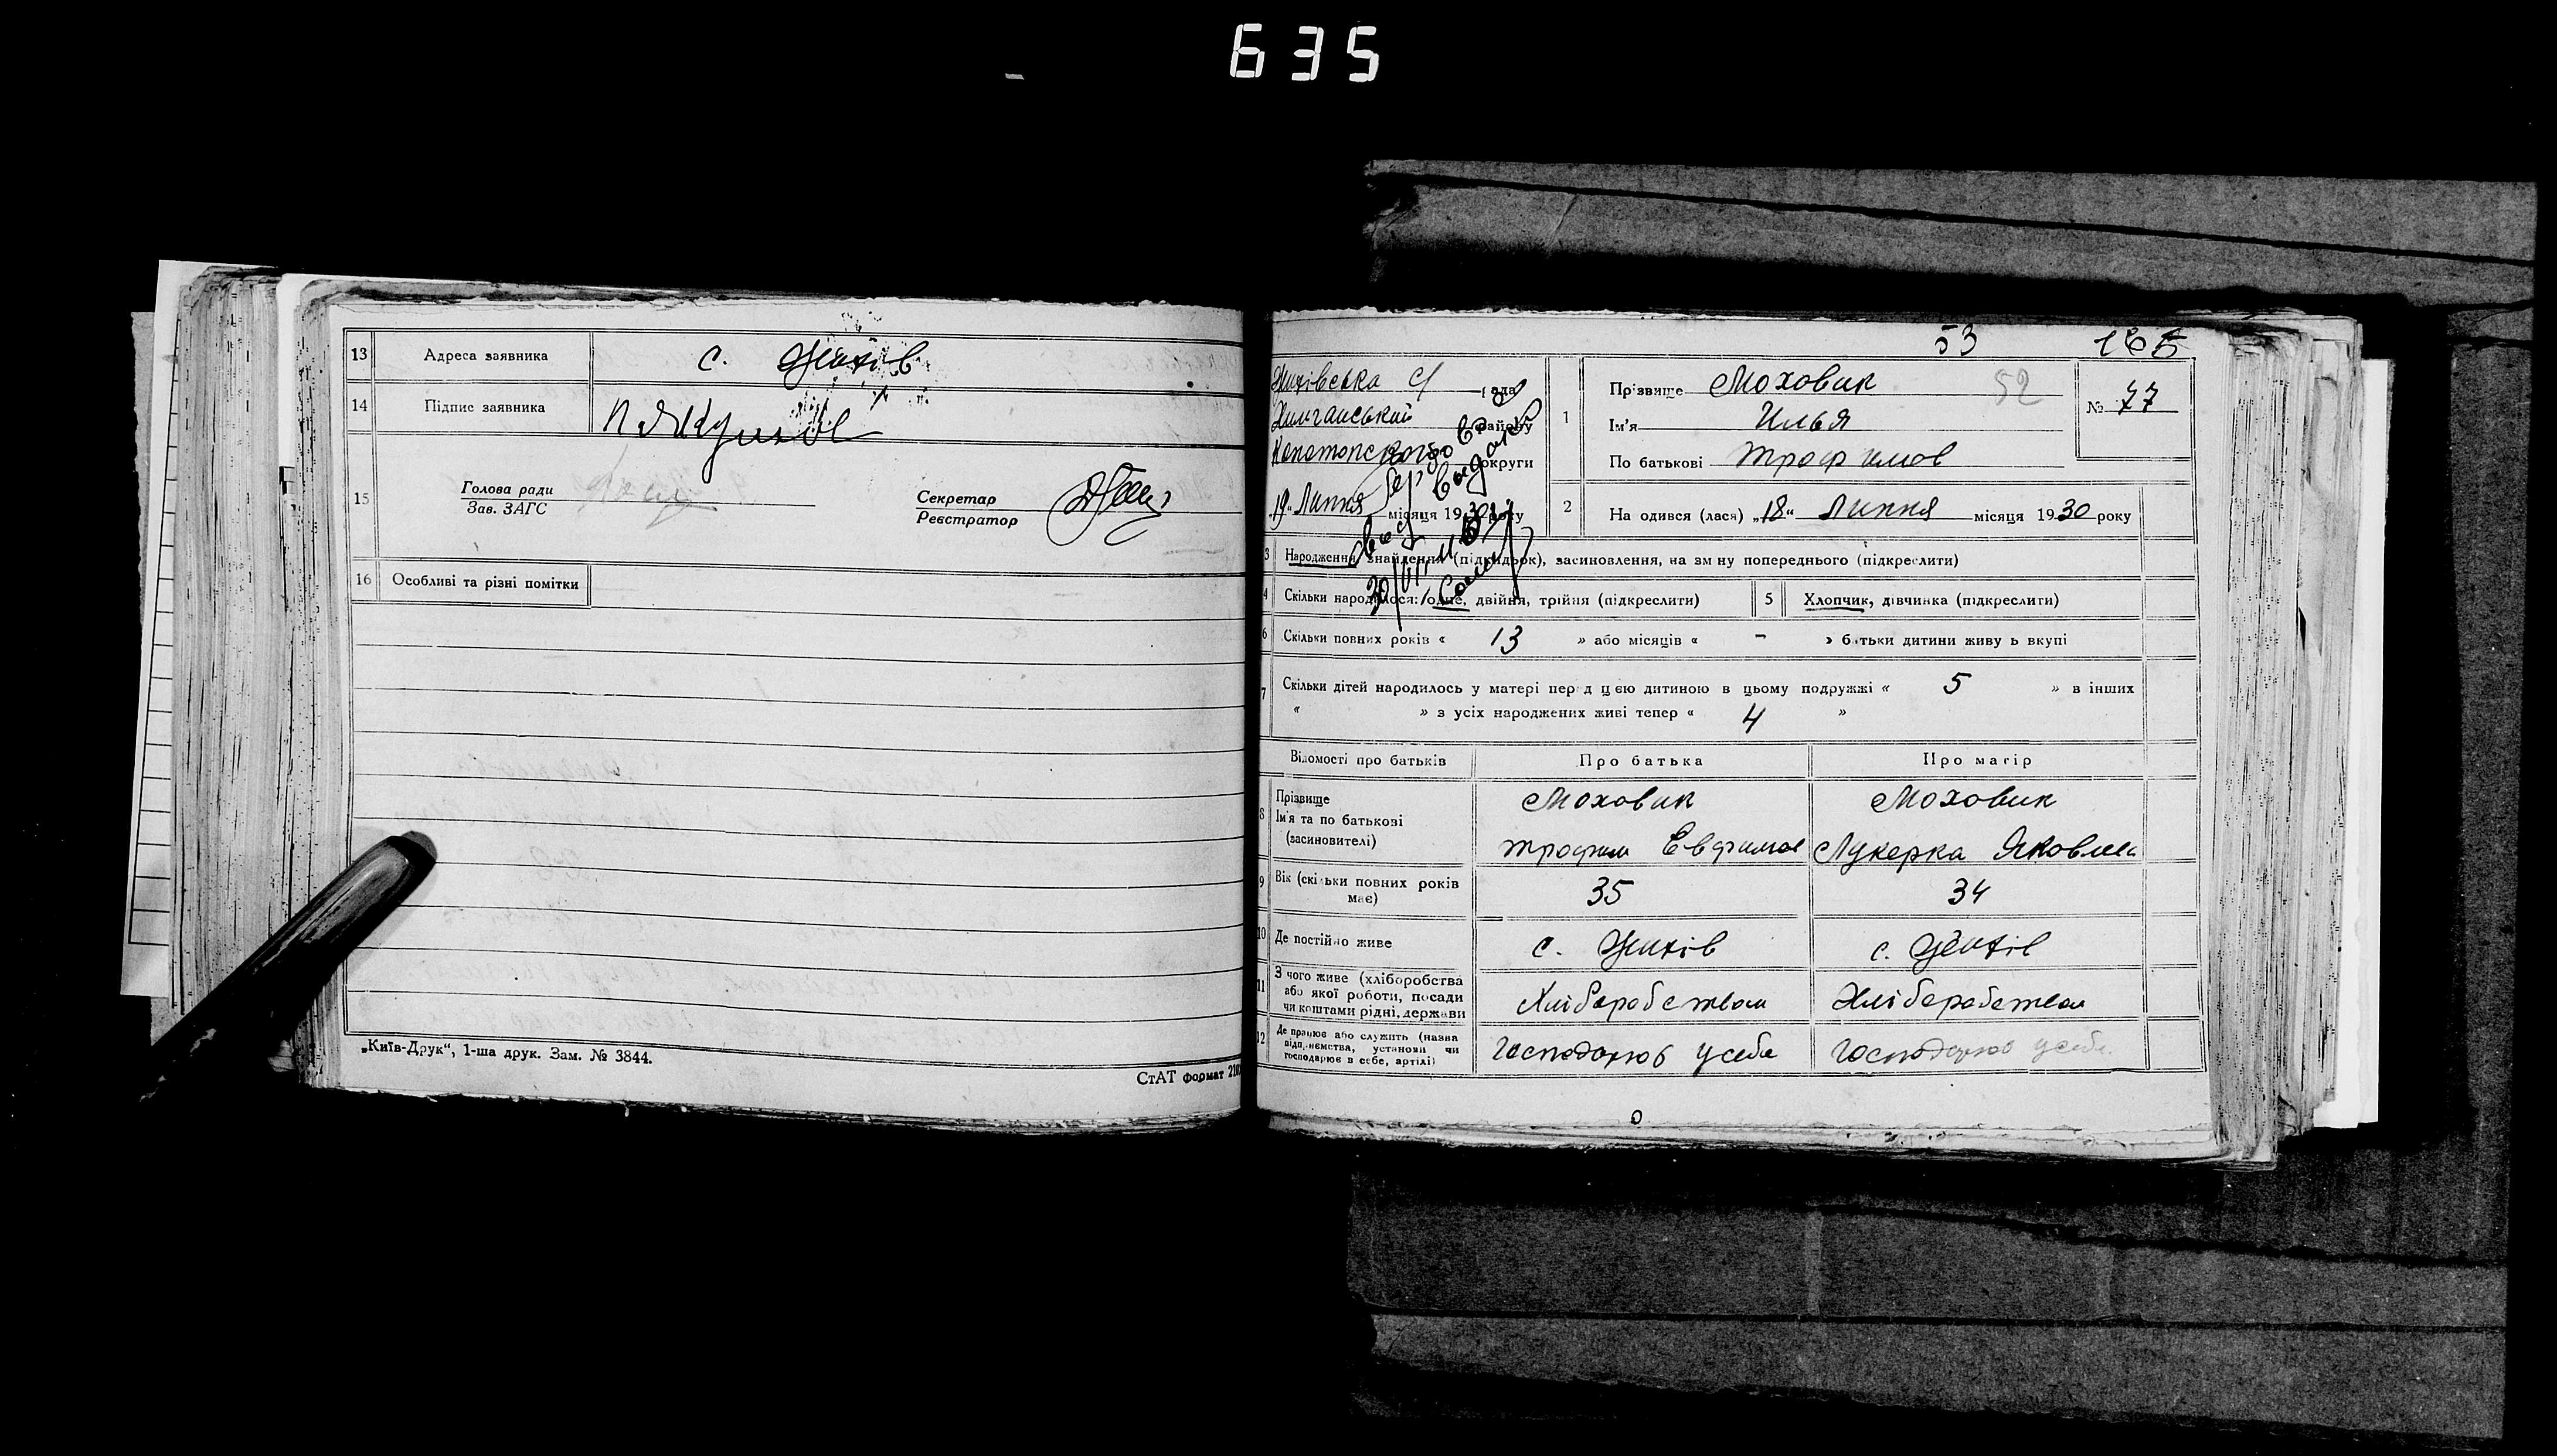 635
13 Адреса заявника с. Жихів
14 Підпис заявника
15 Голова ради
Зав. ЗАГС
Секретар
Реєстратор
16 Особливі та різні помітки
„Київ-Друк“, 1-ша друк. Зам. № 3844.
СтАТ формат
53 165
Жихівська с/ рада
району
округи
„19“ Липня місяця 1930 року
1 Прізвище Моховик 52
Ім'я Илья
По батькові Трофимов
№ 77
2 На одився (лася) „18“ Липня місяця 1930 року
3 Народження, знайдення (підкидьок), засиновлення, на зм ну попереднього (підкреслити)
4 Скільки народилося: одне, двійня, трійня (підкреслити)
5 Хлопчик, дівчинка (підкреслити)
6 Скільки повних років « 13 » або місяців « - » батьки дитини живу ь вкупі
7 Скільки дітей народилось у матері перед цією дитиною в цьому подружжі « 5 » в інших
« » з усіх народжених живі тепер « 4 »
Відомості про батьків Про батька Про матір
8 Прізвище Моховик Моховик
Ім'я та по батькові
(засиновителі) Трофим Евфимов Лукерка Яковлев
9 Вік (скільки повних років має) 35 34
10 Де постійно живе с. Жихів с. Жихів
11 З чого живе (хліборобства
або якої роботи, посади
чи коштами рідні, держави Хліборобством Хліборобством
12 Де працює або служить (назва
підприємства, установи чи
господарює в себе, артілі) Господарює у себе Господарює у себе